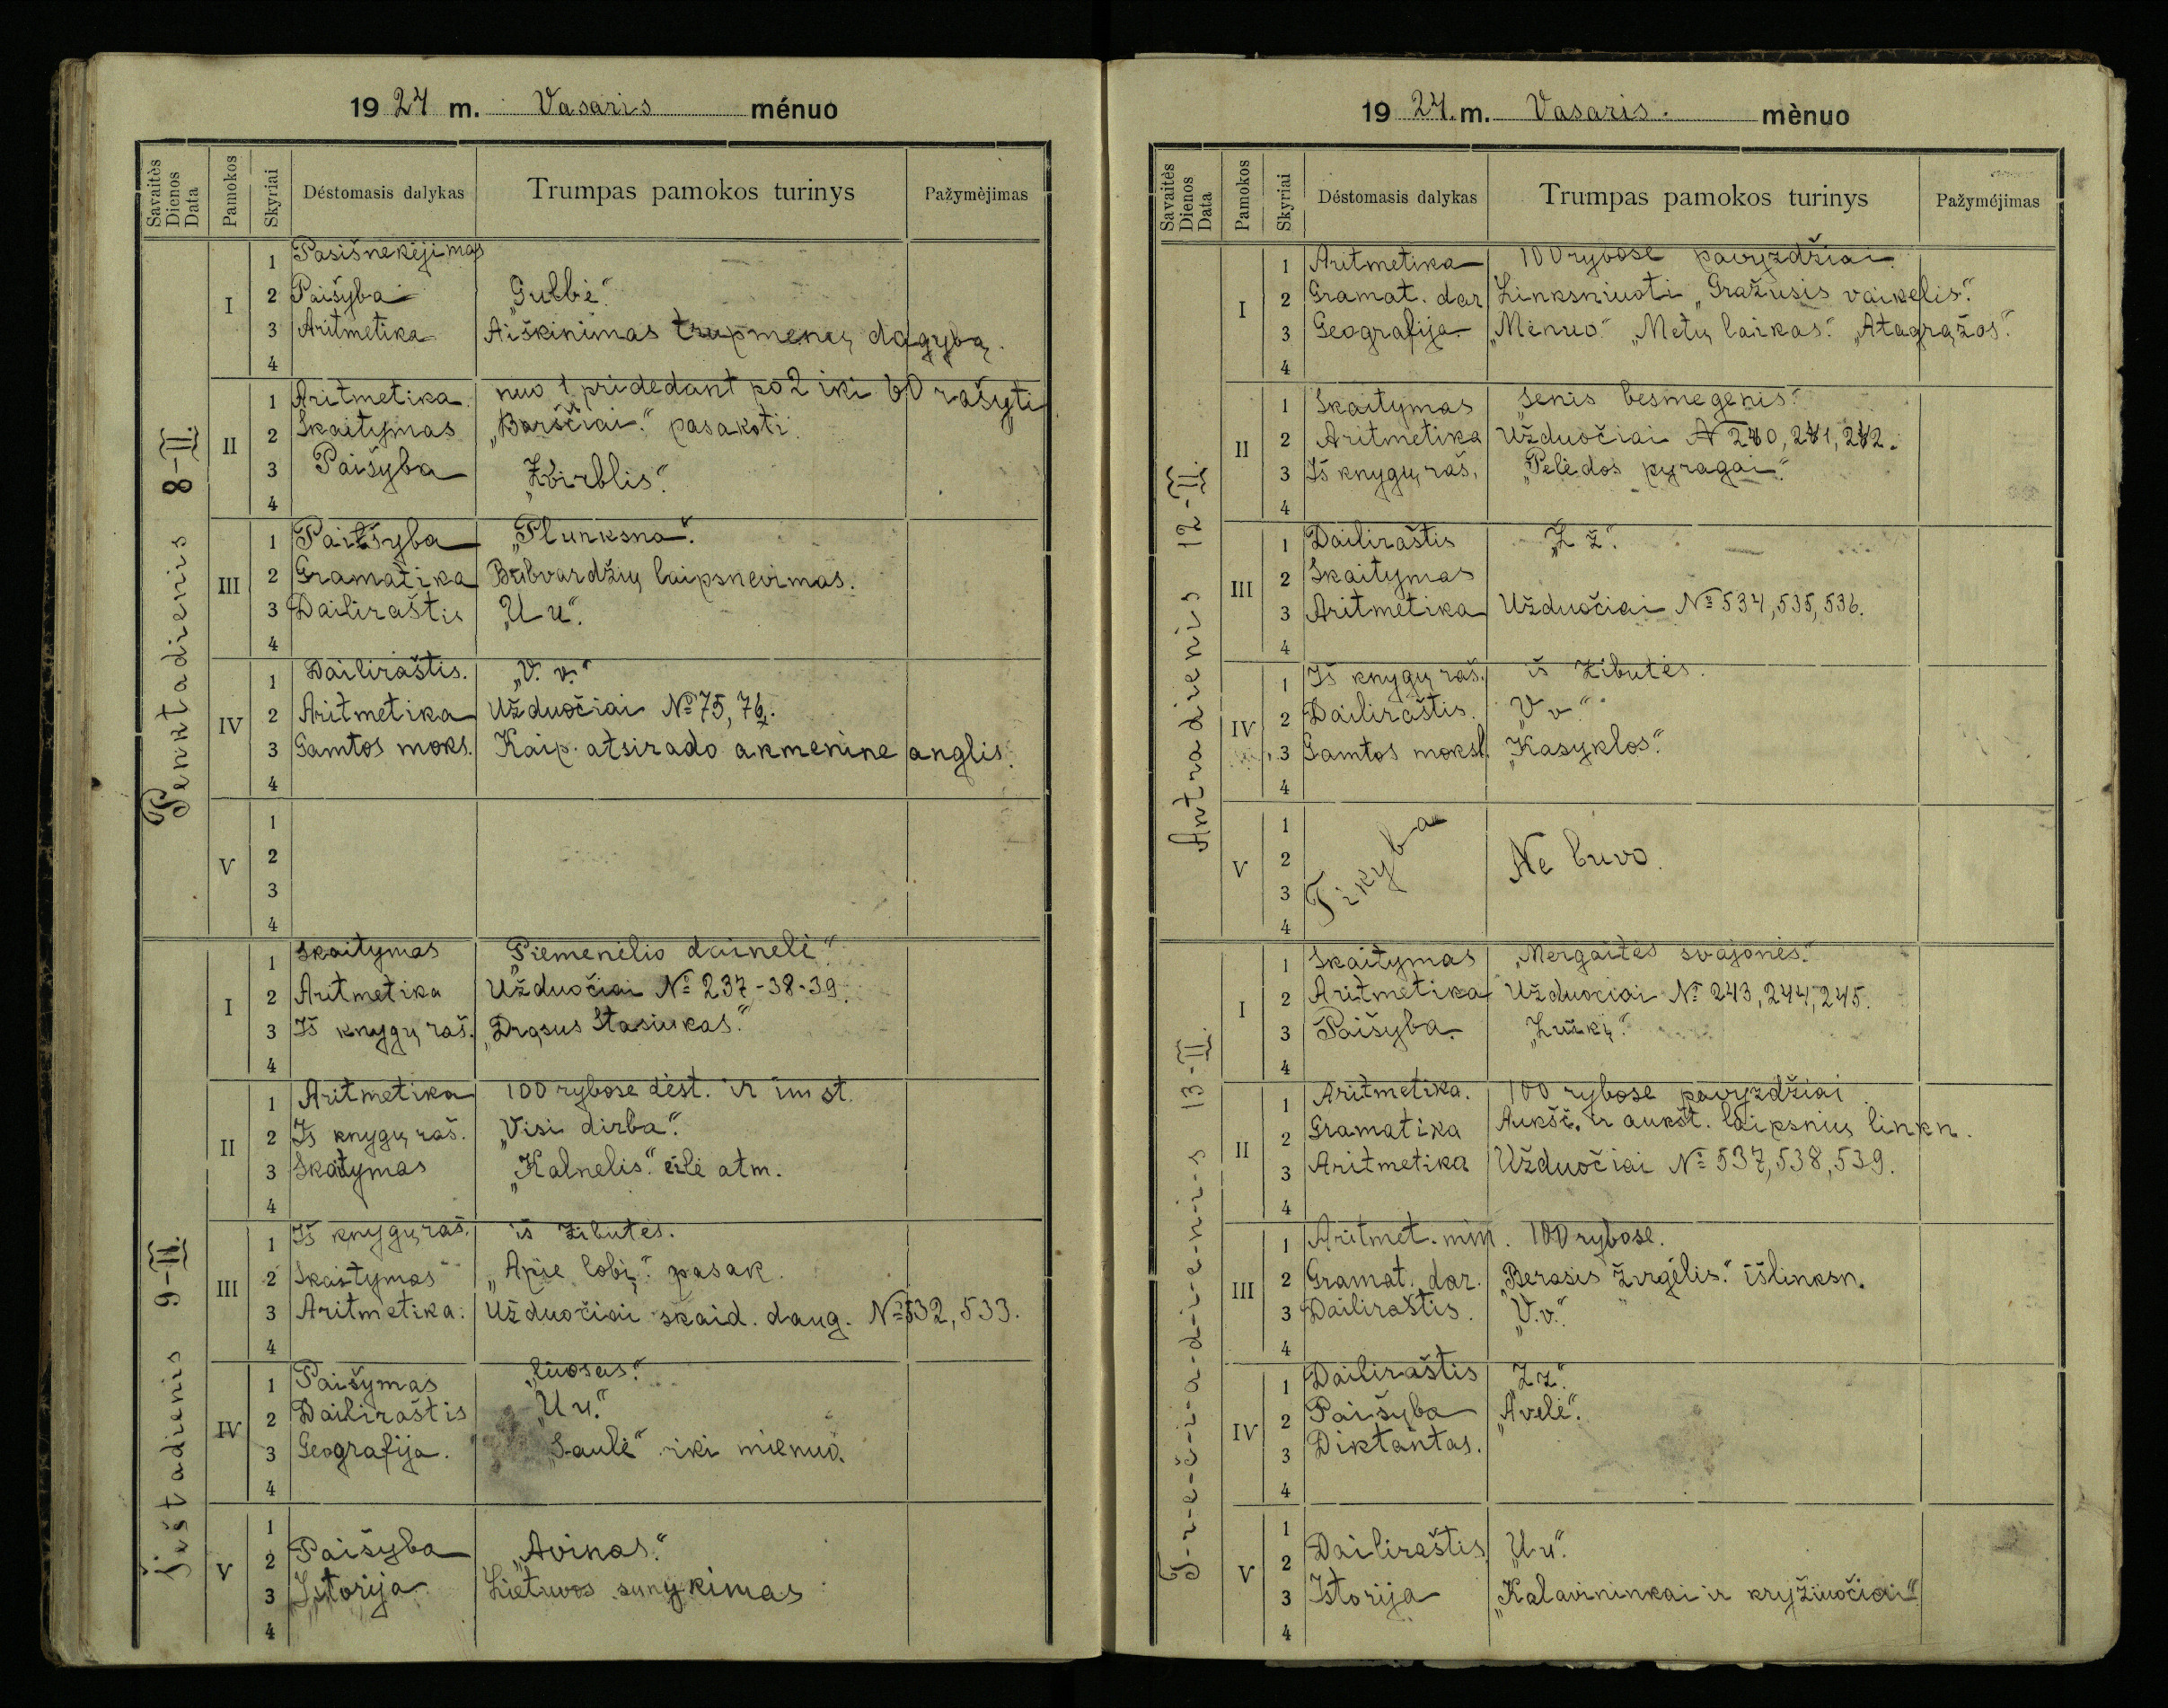 19 24 m. Vasaris ménuo
Savaitės Dienos Data Pamokos Skyriai Déstomasis dalykas Trumpas pamokos turinys Pažymėjimas
Penktadienis 8-II.
I
1 Pasišnekėjimas
2 Paišyba „Gulbė“.
3 Aritmetika Aiškinimas trupmenų dagybą.
4
II
1 Aritmetika. nuo 1 pridedant po 2 iki 60 rašyti
2 Skaitymas „Barščiai“. pasakoti.
3 Paišyba „Žvirblis“.
4
III
1 Paišyba „Plunksna“.
2 Gramatika Būbvardžių laipsnevimas.
3 Dailiraštis „U u“.
4
IV
1 Dailiraštis. „V. v.“
2 Aritmetika Užduočiai № 75, 76.
3 Gamtos moks. Kaip atsirado akmeninė anglis.
4
V
1
2
3
4
Šeštadienis 9-II.
I
1 Skaitymas „Piemenėlio dainelė“.
2 Aritmetika Užduočiai № 237-38-39.
3 Iš knygų raš. „Drąsus Stasiukas“.
4
II
1 Aritmetika 100 rybose dėst. ir imst.
2 Iš knygų raš. „Visi dirba“.
3 Skaitymas „Kalnelis“. eilė atm.
4
III
1 Iš knygų raš. iš žibutės.
2 Skaitymas „Apie lobį“. pasak.
3 Aritmetika. Užduočiai skaid. daug. № 532, 533.
4
IV
1 Paišymas „luosas“.
2 Dailiraštis „U u.“
3 Geografija. „Saulė“ iki mienuo.
4
V
1
2 Paišyba „Avinas“.
3 Istorija Lietuvos sunykimas
4
19 24. m. Vasaris. mènuo
Savaitės Dienos Data Pamokos Skyriai Déstomasis dalykas Trumpas pamokos turinys Pažyméjimas
Antradienis 12-II.
I
1 Aritmetika 100 rybose pavyzdžiai.
2 Gramat. dar Linksniuoti „Gražusis vaikelis“.
3 Geografija. „Mėnuo“ „Metų laikas“. „Atagrąžos“.
4
II
1 Skaitymas „Senis besmegenis“.
2 Aritmetika Užduočiai № 240, 241, 242.
3 Iš knygų raš. „Pelėdos pyragai“.
4
III
1 Dailiraštis „Ž ž“.
2 Skaitymas
3 Aritmetika Užduočiai № 534, 535, 536.
4
IV
1 Iš knygų raš. iš žibutės.
2 Dailiraštis. „V v“.
3 Gamtos moksl. „Kasyklos“.
4
V
1
2 Tikyba Ne buvo.
3
4
T-r-e-č-i-a-d-i-e-n-i-s 13-II.
I
1 Skaitymas „Mergaitės svajonės“.
2 Aritmetika Užduočiai № 243, 244, 245.
3 Paišyba.
4
II
1 Aritmetika. 100 rybose pavyzdžiai.
2 Gramatika Aukšč. ir aukšt. laipsnių linkn.
3 Aritmetika Užduočiai № 537, 538, 539.
4
III
1 Aritmet. min. 100 rybose.
2 Gramat. dar. „Berasis žirgėlis“. išlinksn.
3 Dailiraštis. „V. v.“
4
IV
1 Dailiraštis „Z z“.
2 Paišyba „Avelė“.
3 Diktantas.
4
V
1
2 Dailiraštis „U u“.
3 Istorija „Kalavininkai ir kryžiuočiai“
4